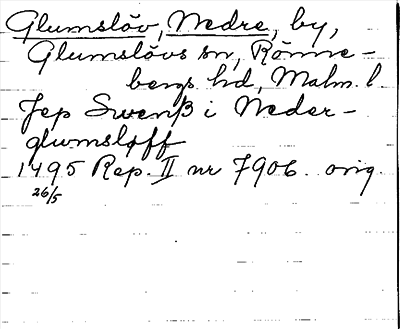 Glumslöv, Nedre, by,
Glumslövs sn, Rönne-
bergs hd, Malm. l.
Jep Swenß i Neder-
glumsløff
1495 Rep. II nr 7906. orig.
26/5